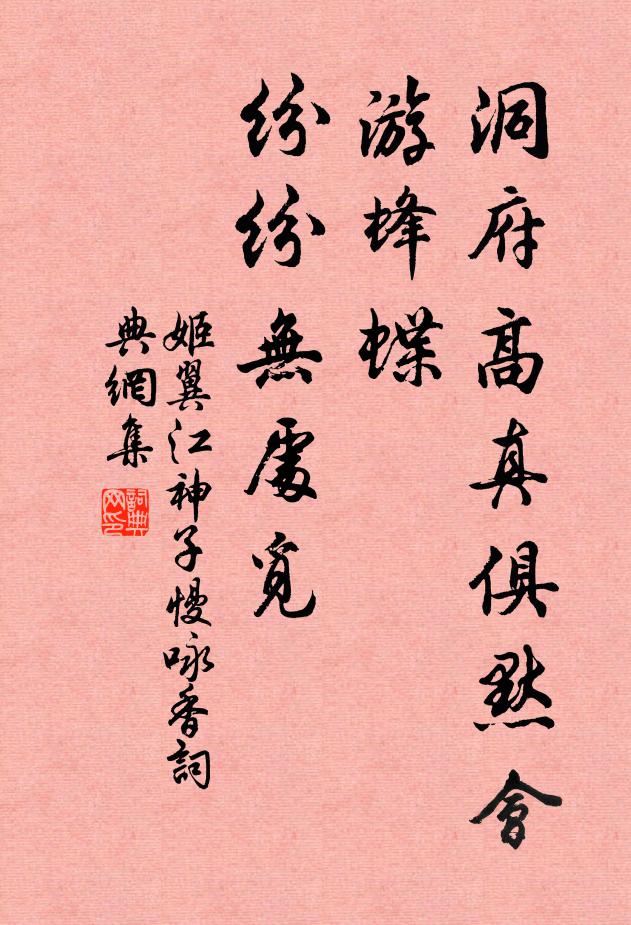 洞府高真俱默會
游蜂蝶
紛紛無處覓
姬翼江神子慢咏香詞
典網集
詞典網印